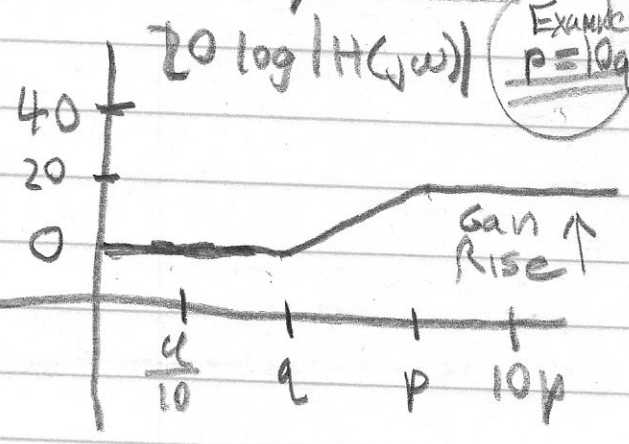 20 log |H(jω)|
Example
p = 10q
40
20
0
Gain ↑
Rise
q/10
q
p
10p